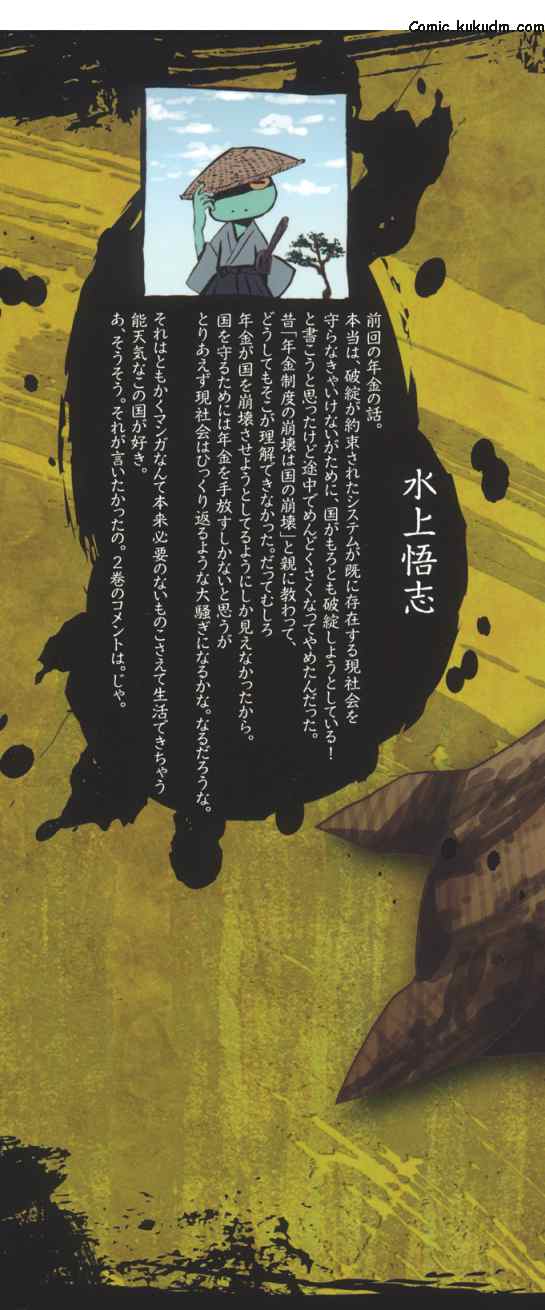 Comic.kukudm.com
水上悟志
前回の年金の話。
本当は、破綻が約束されたシステムが既に存在する現社会を
守らなきゃいけないがために、国がもろとも破綻しようとしている!
と書こうと思ったけど途中でめんどくさくなってやめたんだった。
昔「年金制度の崩壊は国の崩壊」と親に教わって、
どうしてもそこが理解できなかった。だってむしろ
年金が国を崩壊させようとしてるようにしか見えなかったから。
国を守るためには年金を手放すしかないと思うが
とりあえず現社会はひっくり返るような大騒ぎになるかな。なるだろうな。
それはともかくマンガなんて本来必要のないものこさえて生活できちゃう
能天気なこの国が好き。
あ、そうそう。それが言いたかったの。2巻のコメントは。じゃ。